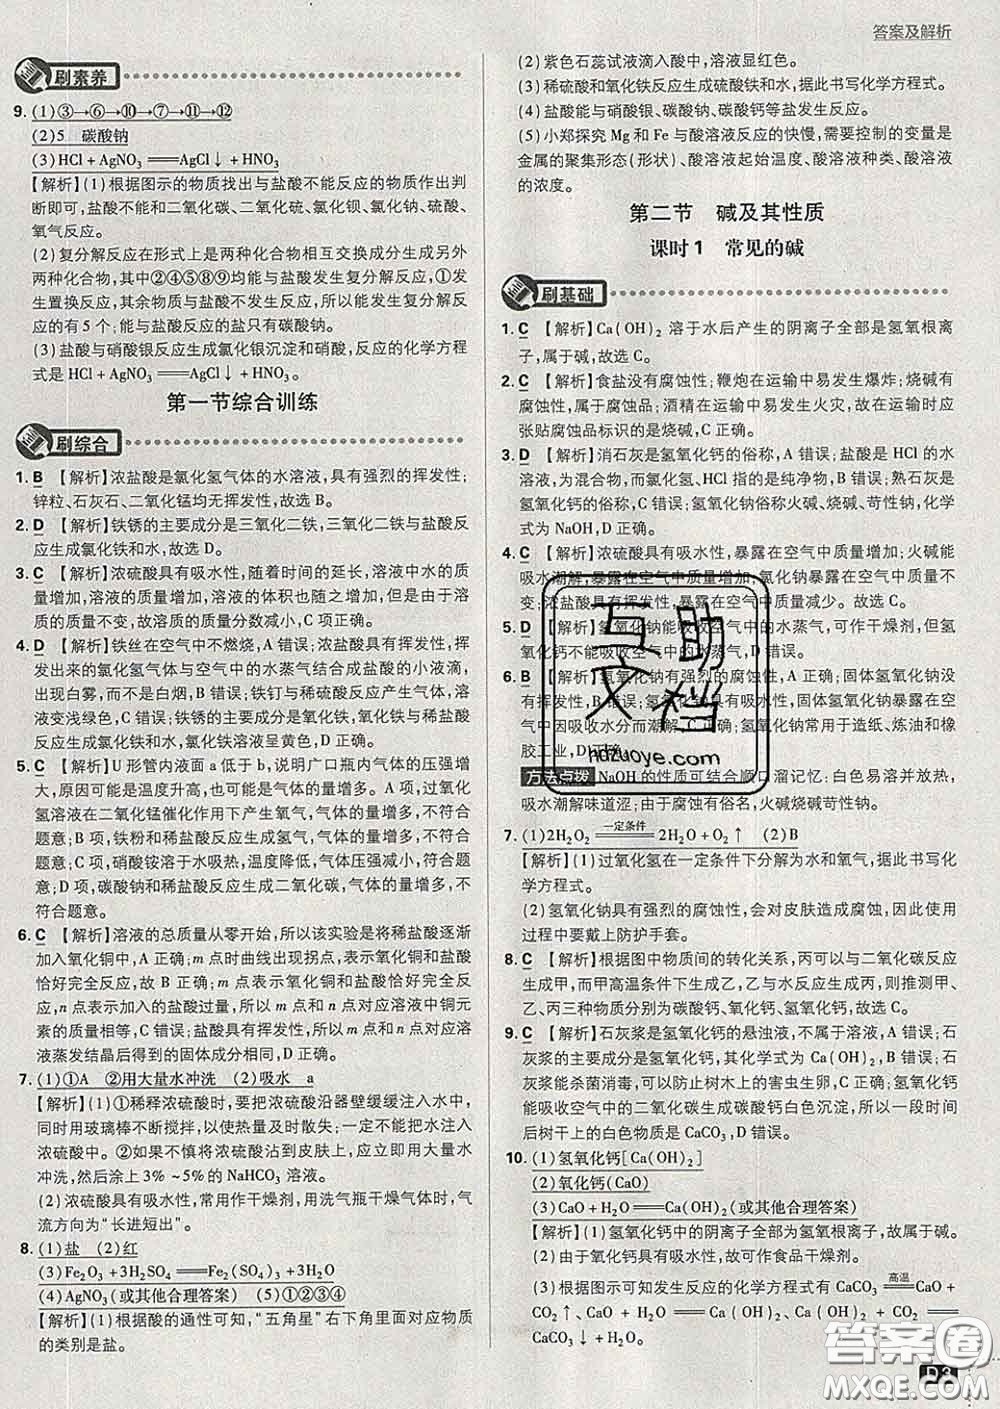 答案及解析
刷素养
9. (1)③→⑥→⑩→⑦→⑪→⑫
(2)5　碳酸钠
(3)HCl + AgNO₃ ══ AgCl↓ + HNO₃
【解析】(1)根据图示的物质找出与盐酸不能反应的物质作出判
断即可,盐酸不能和二氧化碳、二氧化硫、氯化钡、氯化钠、硫酸、
氧气反应。
(2)复分解反应在形式上是两种化合物相互交换成分生成另外
两种化合物,其中②④⑤⑧⑨均能与盐酸发生复分解反应,①发
生置换反应,其余物质与盐酸不发生反应,所以能发生复分解反应
的有 5 个;能与盐酸反应的盐只有碳酸钠。
(3)盐酸与硝酸银反应生成氯化银沉淀和硝酸,反应的化学方程
式是 HCl + AgNO₃ ══ AgCl↓ + HNO₃。
第一节综合训练
刷综合
1. B 【解析】浓盐酸是氯化氢气体的水溶液,具有强烈的挥发性;
锌粒、石灰石、二氧化锰均无挥发性,故选 B。
2. D 【解析】铁锈的主要成分是三氧化二铁,三氧化二铁与盐酸反
应生成氯化铁和水,故选 D。
3. C 【解析】浓硫酸具有吸水性,随着时间的延长,溶液中水的质
量增加,溶液的质量增加,溶液的体积也随之增加,但是由于溶
质的质量不变,故溶质的质量分数减小,C 项正确。
4. D 【解析】铁丝在空气中不燃烧,A 错误;浓盐酸具有挥发性,挥
发出来的氯化氢气体与空气中的水蒸气结合成盐酸的小液滴,
出现白雾,而不是白烟,B 错误;铁钉与稀硫酸反应一段时间,溶
液变浅绿色,C 错误;铁锈的主要成分是氧化铁,氧化铁与稀盐酸
反应生成氯化铁和水,氯化铁溶液呈黄色,D 正确。
5. C 【解析】U 形管内液面 a 低于 b,说明广口瓶内气体的压强增
大,原因可能是温度升高,也可能是气体的量增多。A 项,过氧化
氢溶液在二氧化锰催化作用下产生氧气,气体的量增多,不符合
题意;B 项,铁粉和稀盐酸反应生成氢气,气体的量增多,不符合
题意;C 项,硝酸铵溶于水吸热,温度降低,气体压强减小,符合题
意;D 项,碳酸钠和稀盐酸反应生成二氧化碳,气体的量增多,不
符合题意。
6. C 【解析】溶液的总质量从零开始,所以该实验是将稀盐酸逐渐
加入氧化铜中,A 正确;m 点时曲线出现拐点,表示氧化铜和盐酸
恰好完全反应,所以 m 点表示氧化铜和盐酸恰好完全反应,B 正
确;n 点表示加入的盐酸过量,所以 m 点和 n 点对应溶液中铜元
素的质量相等,C 错误;盐酸具有挥发性,所以将 m 点和 n 点对应
溶液蒸发结晶后得到的固体成分相同,D 正确。
7. (1)①A　②用大量水冲洗　(2)吸水　a
【解析】(1)①稀释浓硫酸时,要把浓硫酸沿器壁缓缓注入水中,
同时用玻璃棒不断搅拌,以使热量及时散失;一定不能把水注入
浓硫酸中。②如果不慎将浓硫酸沾到皮肤上,应立即用大量水
冲洗,然后涂上 3% ~5%的 NaHCO₃ 溶液。
(2)浓硫酸具有吸水性,常用作干燥剂,用洗气瓶干燥气体时,气
流方向为“长进短出”。
8. (1)盐　(2)红
(3)Fe₂O₃ +3H₂SO₄ ══ Fe₂(SO₄)₃ +3H₂O
(4)AgNO₃(或其他合理答案)　(5)①②③④
【解析】(1)根据酸的通性可知,“五角星”右下角里面对应物质
的类别是盐。
(2)紫色石蕊试液滴入酸中,溶液显红色。
(3)稀硫酸和氧化铁反应生成硫酸铁和水,据此书写化学方程式。
(4)盐酸能与硝酸银、碳酸钠、碳酸钙等盐发生反应。
(5)小郑探究 Mg 和 Fe 与酸溶液反应的快慢,需要控制的变量是
金属的聚集形态(形状)、酸溶液起始温度、酸溶液种类、酸溶液
的浓度。
第二节　碱及其性质
课时1　常见的碱
刷基础
1. C 【解析】Ca(OH)₂ 溶于水后产生的阴离子全部是氢氧根离
子,属于碱,故选 C。
2. C 【解析】食盐没有腐蚀性;鞭炮在运输中易发生爆炸;烧碱有
腐蚀性,属于腐蚀品;酒精在运输中易发生火灾,故在运输时应
张贴腐蚀品标识的是烧碱,C 正确。
3. D 【解析】消石灰是氢氧化钙的俗称,A 错误;盐酸是 HCl 的水溶
液,为混合物,而氯化氢、HCl 指的是纯净物,B 错误;熟石灰是
氢氧化钙的俗称,C 错误;氢氧化钠俗称火碱、烧碱、苛性钠,化学
式为 NaOH,D 正确。
4. C 【解析】浓硫酸具有吸水性,暴露在空气中质量增加;火碱能
吸水潮解,暴露在空气中质量增加;氯化钠暴露在空气中质量不
变;浓盐酸具有挥发性,暴露在空气中质量减少。故选 C。
5. D 【解析】氢氧化钠能吸收空气中的水蒸气,可作干燥剂,但氢
氧化钙不能吸收空气中的水蒸气,D 错误。
6. B 【解析】氢氧化钠有强烈的腐蚀性,A 正确;固体氢氧化钠没
有挥发性,B 错误;氢氧化钠具有吸水性,固体氢氧化钠暴露在空
气中因吸收水分而潮解,C 正确;氢氧化钠常用于造纸、炼油和橡
胶工业,D 正确。
方法点拨 NaOH 的性质可结合顺口溜记忆:白色易溶并放热,
吸水潮解味道涩;由于腐蚀有俗名,火碱烧碱苛性钠。
7. (1)2H₂O₂ ══一定条件══ 2H₂O + O₂↑　(2)B
【解析】(1)过氧化氢在一定条件下分解为水和氧气,据此书写化
学方程式。
(2)氢氧化钠具有强烈的腐蚀性,会对皮肤造成腐蚀,因此在使用
过程中要戴上防护手套。
8. C 【解析】根据图中物质间的转化关系,丙可以与二氧化碳反应
生成甲,而甲高温条件下生成乙,乙与水反应生成丙,则推测甲、
乙、丙三种物质分别为碳酸钙、氧化钙、氢氧化钙,故选 C。
9. C 【解析】石灰浆是氢氧化钙的悬浊液,不属于溶液,A 错误;石
灰浆的主要成分是氢氧化钙,其化学式为 Ca(OH)₂,B 错误;石
灰浆能杀菌消毒,可以防止树木上的害虫生卵,C 正确;氢氧化钙
能吸收空气中的二氧化碳生成碳酸钙白色沉淀,所以一段时间
后树干上的白色物质是 CaCO₃,D 错误。
10. (1)氢氧化钙[Ca(OH)₂]
(2)氧化钙(CaO)
(3)CaO + H₂O ══ Ca(OH)₂(或其他合理答案)
【解析】(1)氢氧化钙中的阴离子全部为氢氧根离子,故属于碱。
(2)由于氧化钙具有吸水性,故可作食品干燥剂。
(3)根据图示可知发生反应的化学方程式有 CaCO₃ ══高温══ CaO +
CO₂↑、CaO + H₂O ══ Ca(OH)₂、Ca(OH)₂ + CO₂ ══
CaCO₃↓ + H₂O
互助
文档
hdzuoye.com
答案圈
MXQE.COM
D3